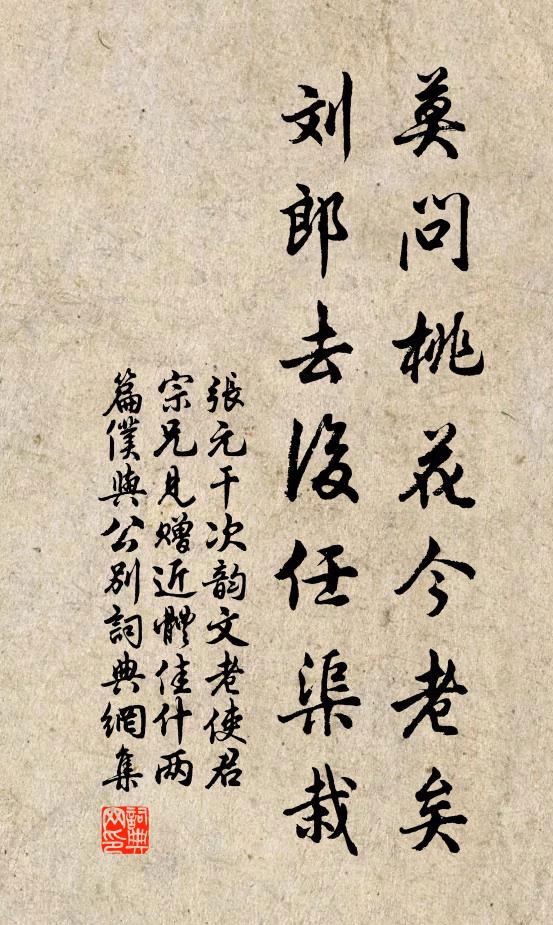 莫問桃花今老矣
刘郎去後任渠栽
張元干次韵文老使君
宗兄見贈近體佳什两
篇僕與公别詞典網集
詞典
网印